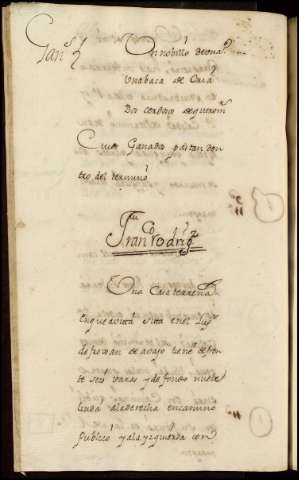 Gan.s Un nobillo de una.
Una baca de Cria
Dos cerdos de quatrom
Cuio Ganado pastan den
tro del termino
Fran.co Rodrig.z
Una Casa terrena
En que avita sita en el Lug.r
de Froian de abajo tiene de fren
te seis varas y de fondo nuebe
linda a la derecha en camino
publico y a la yzquierda con